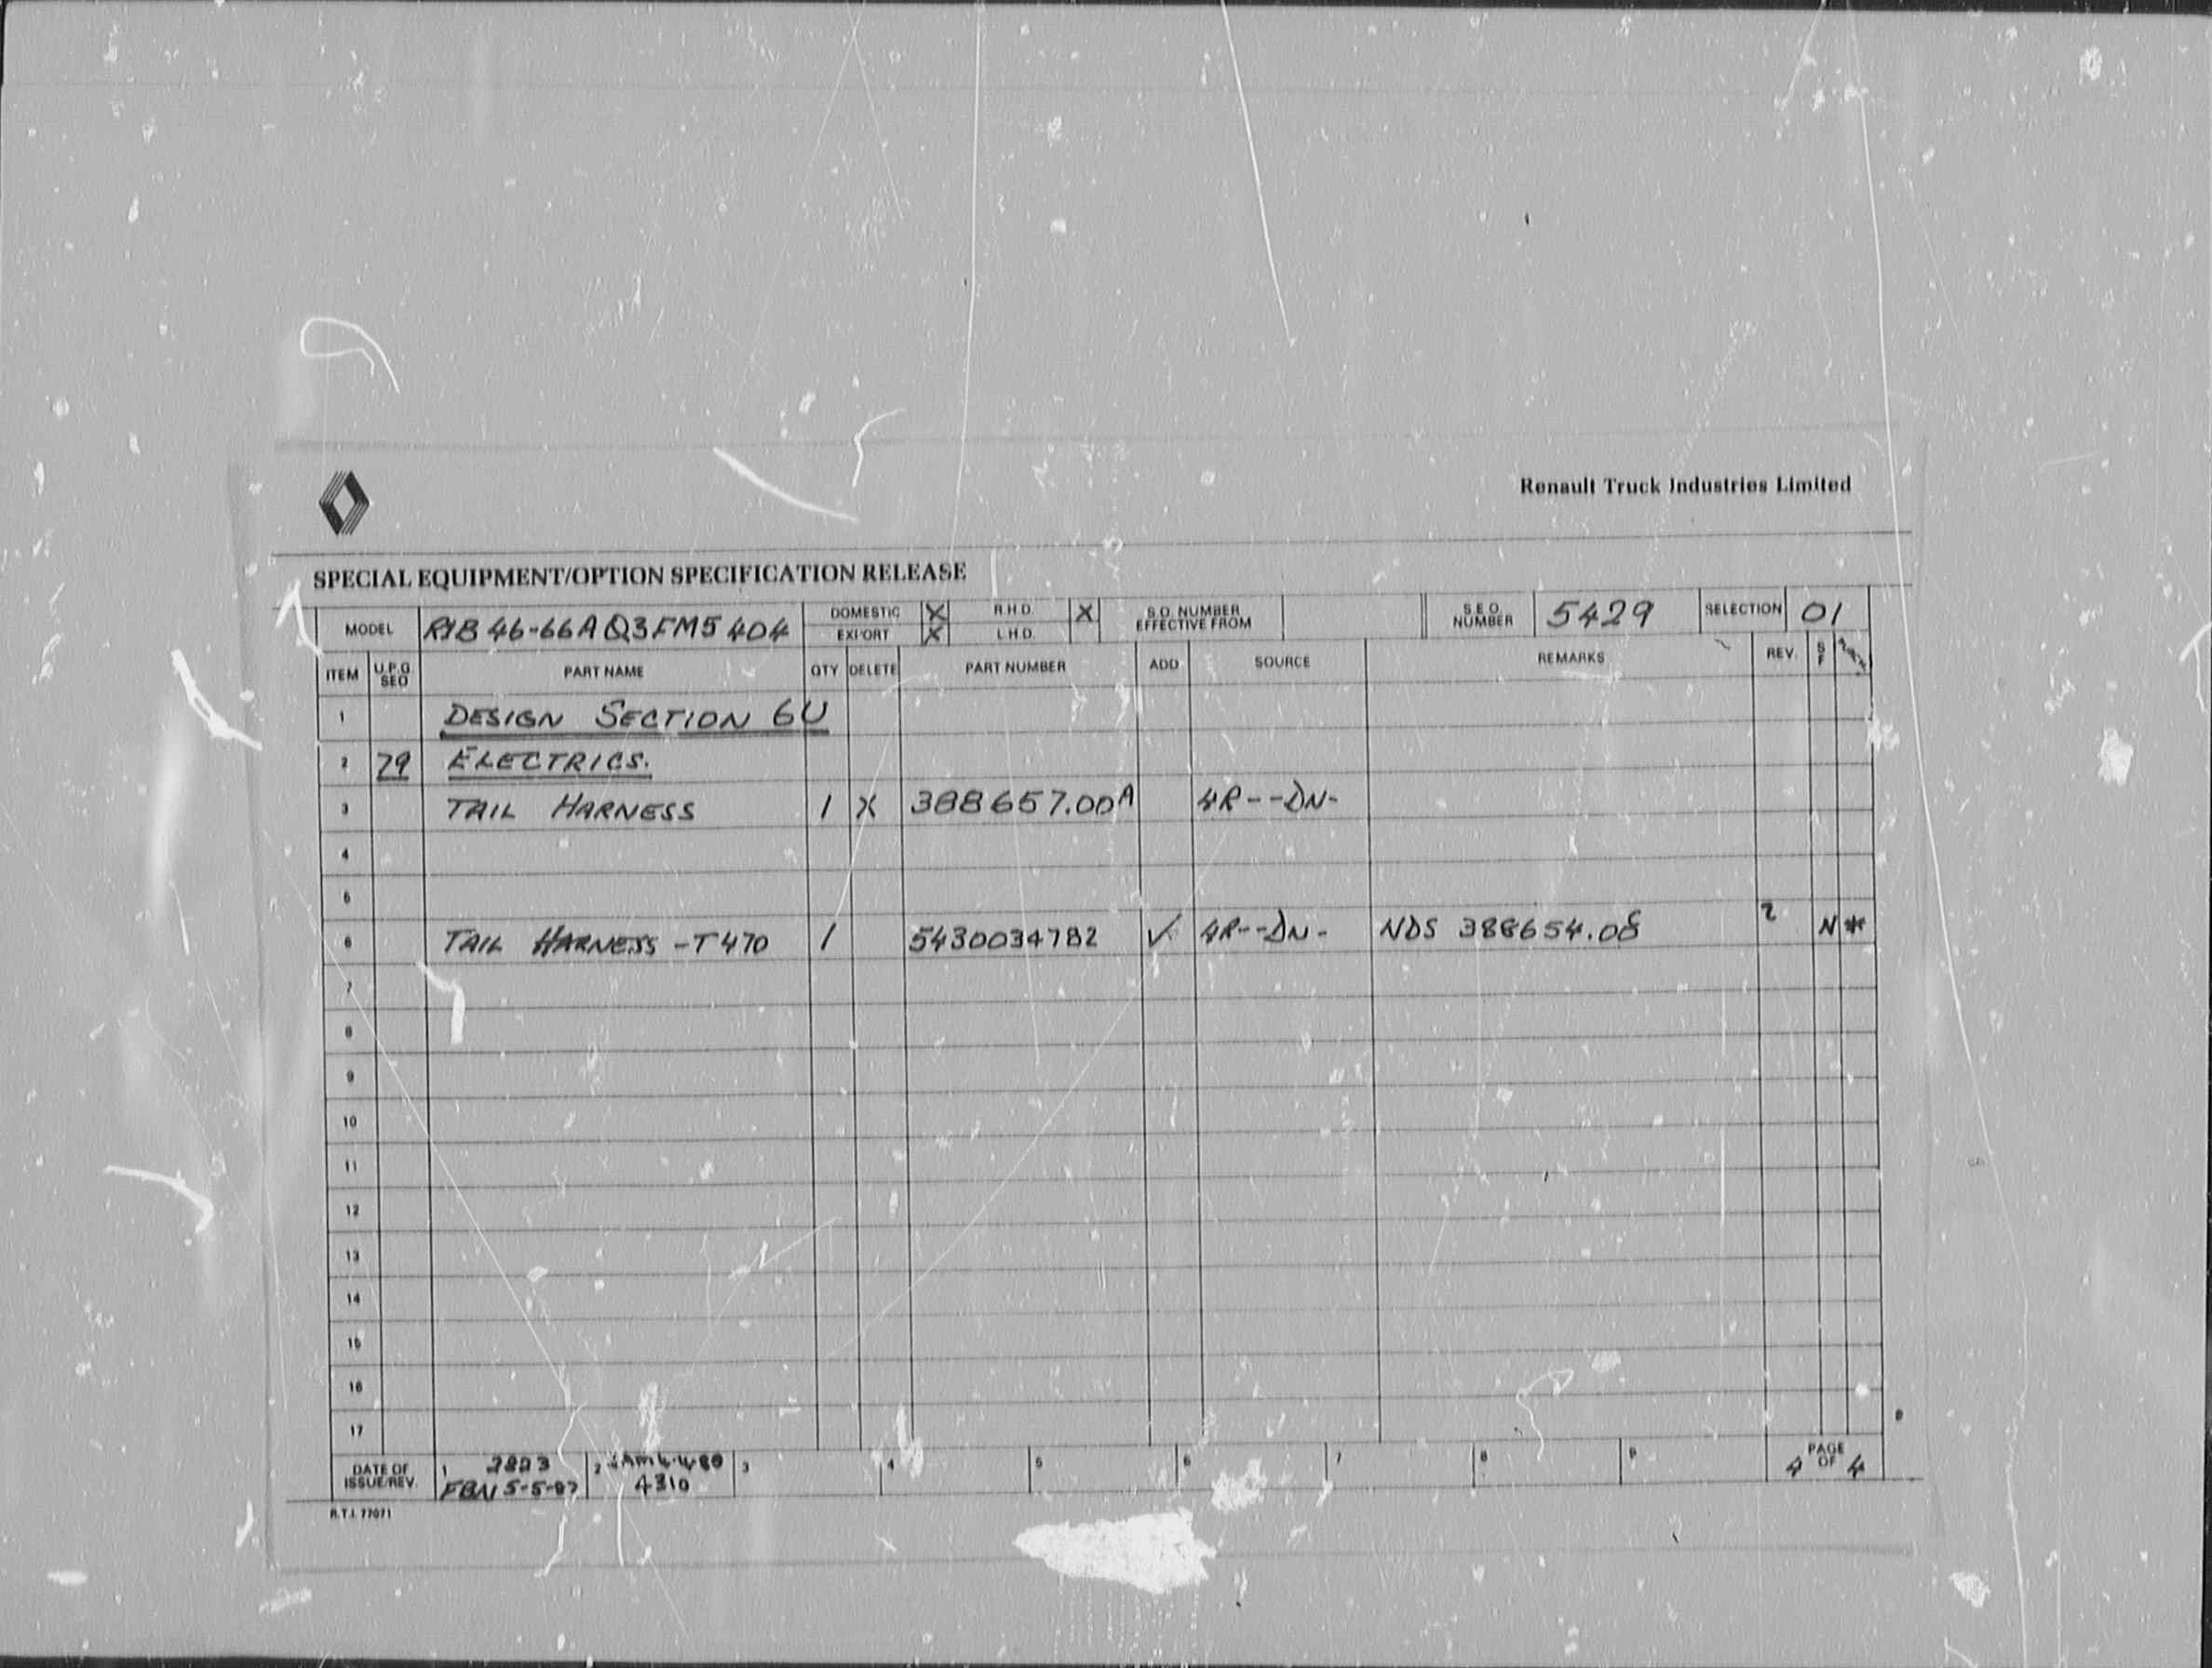 Renault Truck Industries Limited
SPECIAL EQUIPMENT/OPTION SPECIFICATION RELEASE
MODEL RYB 46-66A Q3FM5 404 DOMESTIC X R.H.D. X S.O. NUMBER EFFECTIVE FROM S.E.O. NUMBER 5429 SELECTION 01
EXPORT X L.H.D.
ITEM U.P.G. SEQ PART NAME QTY DELETE PART NUMBER ADD SOURCE REMARKS REV. S F
1 DESIGN SECTION 6U
2 79 ELECTRICS.
3 TAIL HARNESS 1 X 388657.00A 4R--DN-
4
5
6 TAIL HARNESS -T470 1 5430034782 ✓ 4R--DN- NDS 388654.08 2 N *
7
8
9
10
11
12
13
14
15
16
17
DATE OF ISSUE/REV. 1 2823 FBN 5-5-87 2 4310 3 4 5 6 7 8 9 PAGE 4 OF 4
R.T.I. 77071